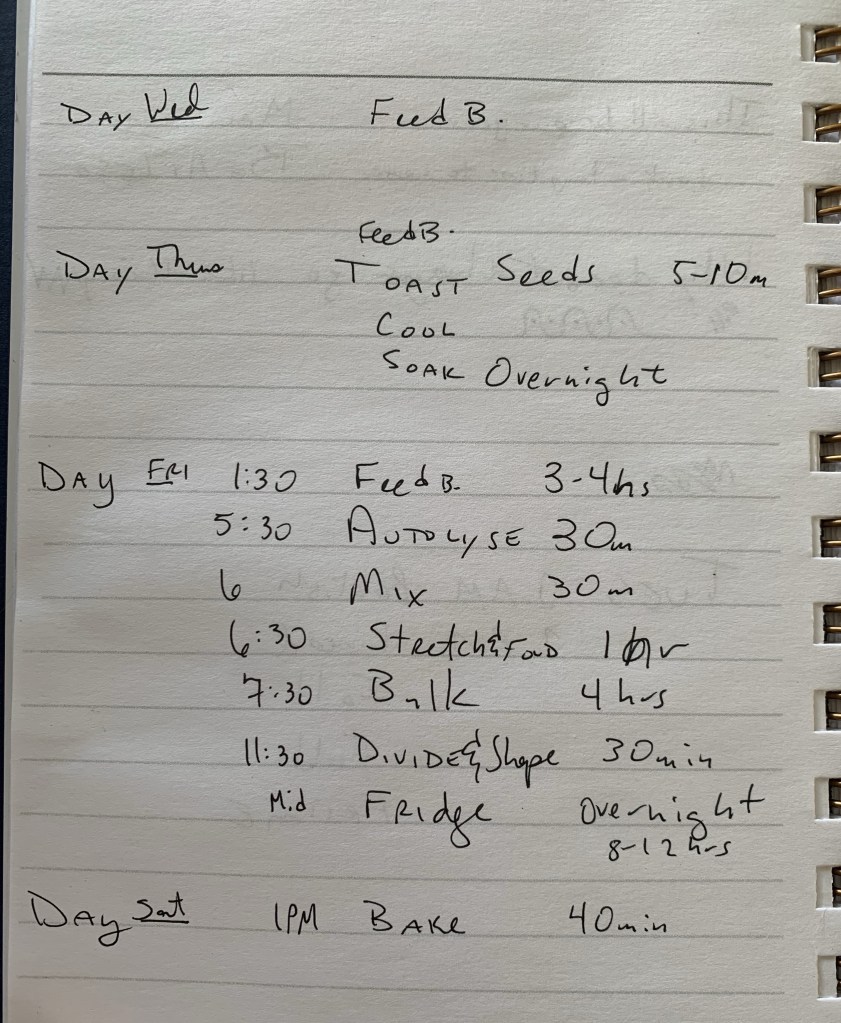 DAY Wed Feed B.
Feed B.
DAY Thurs TOAST Seeds 5-10m
COOL
SOAK Overnight
DAY FRI 1:30 Feed B. 3-4hs
5:30 AUTOLYSE 30m
6 MIX 30m
6:30 Stretch & FOLD 1 hr
7:30 Bulk 4 hrs
11:30 DIVIDE & Shape 30min
Mid FRIdge Overnight
8-12 hrs
DAY Sat 1PM BAKe 40min